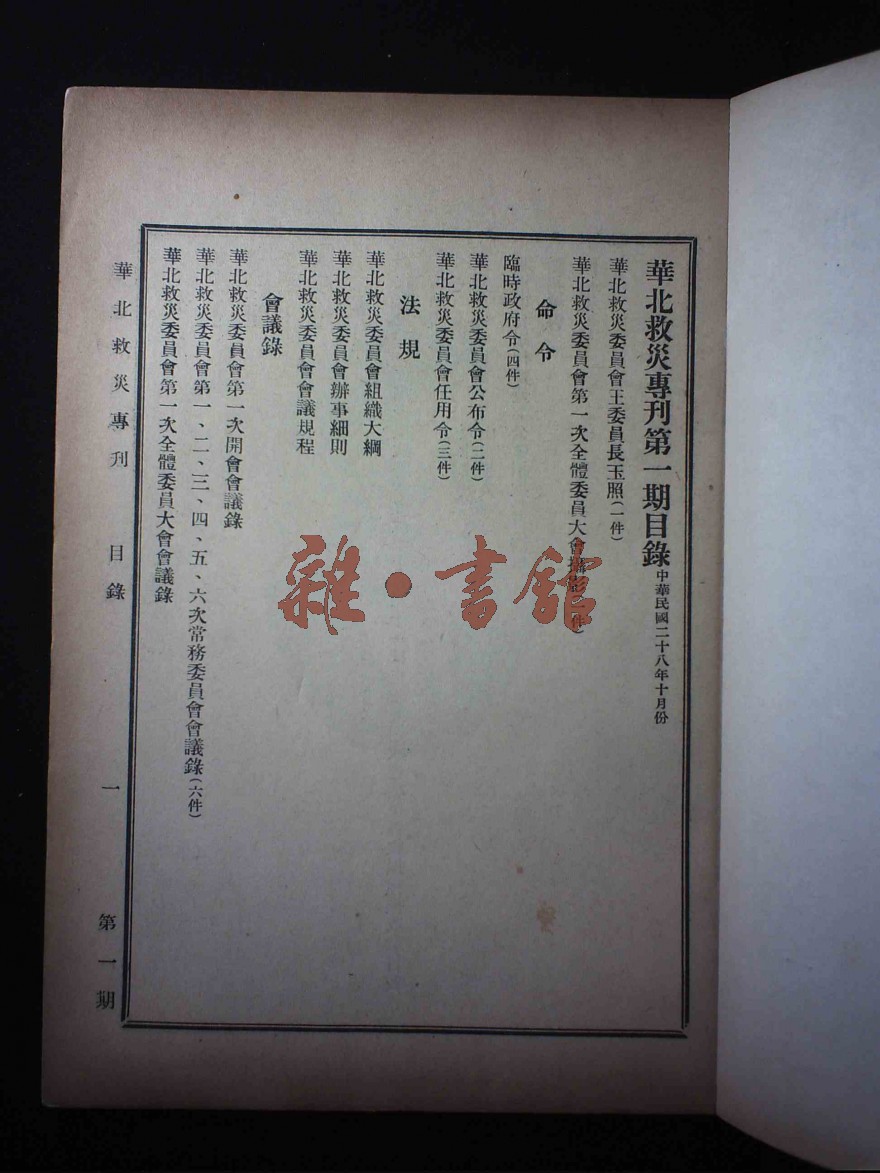 華北救災專刊第一期目錄 中華民國二十八年十月份
華北救災委員會王委員長玉照(一件)
華北救災委員會第一次全體委員大會攝影(一件)
命令
臨時政府令(四件)
華北救災委員會公布令(二件)
華北救災委員會任用令(三件)
法規
華北救災委員會組織大綱
華北救災委員會辦事細則
華北救災委員會會議規程
會議錄
華北救災委員會第一次開會會議錄
華北救災委員會第一、二、三、四、五、六次常務委員會會議錄(六件)
華北救災委員會第一次全體委員大會會議錄
華北救災專刊 目錄 一 第一期
雜·書館